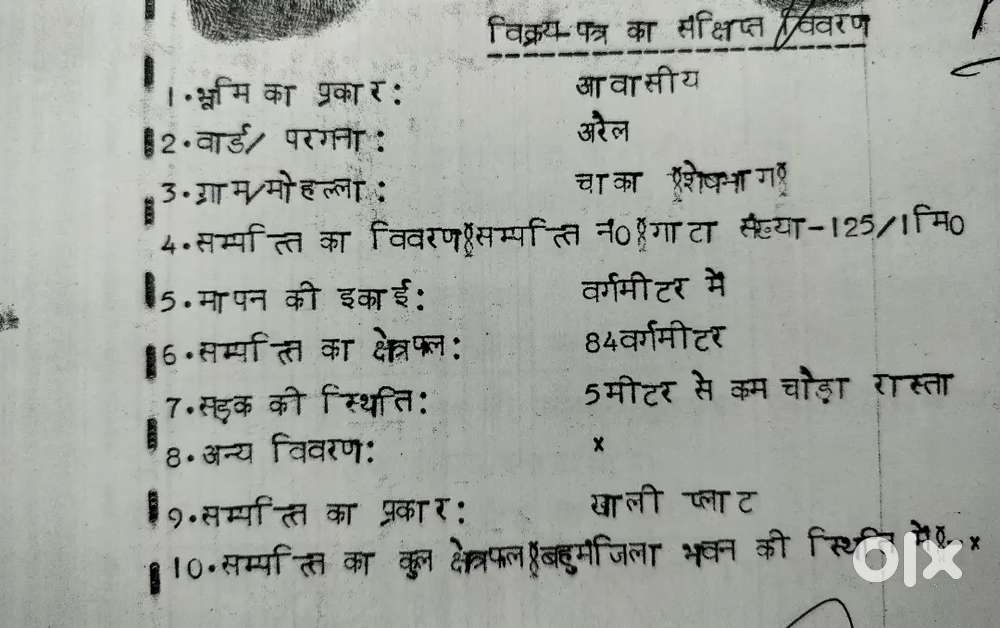 विक्रय-पत्र का संक्षिप्त विवरण
1.भूमि का प्रकार: आवासीय
2.वार्ड/ परगना: अरैल
3.ग्राम/मोहल्ला: चाका (शेषभाग)
4.सम्पत्ति का विवरण(सम्पत्ति नं0)गाटा संख्या-125/1मि0
5.मापन की इकाई: वर्गमीटर में
6.सम्पत्ति का क्षेत्रफल: 84वर्गमीटर
7.सड़क की स्थिति: 5मीटर से कम चौड़ा रास्ता
8.अन्य विवरण: x
9.सम्पत्ति का प्रकार: खाली प्लाट
10.सम्पत्ति का कुल क्षेत्रफल(बहुमंजिला भवन की स्थिति में) x
OLX